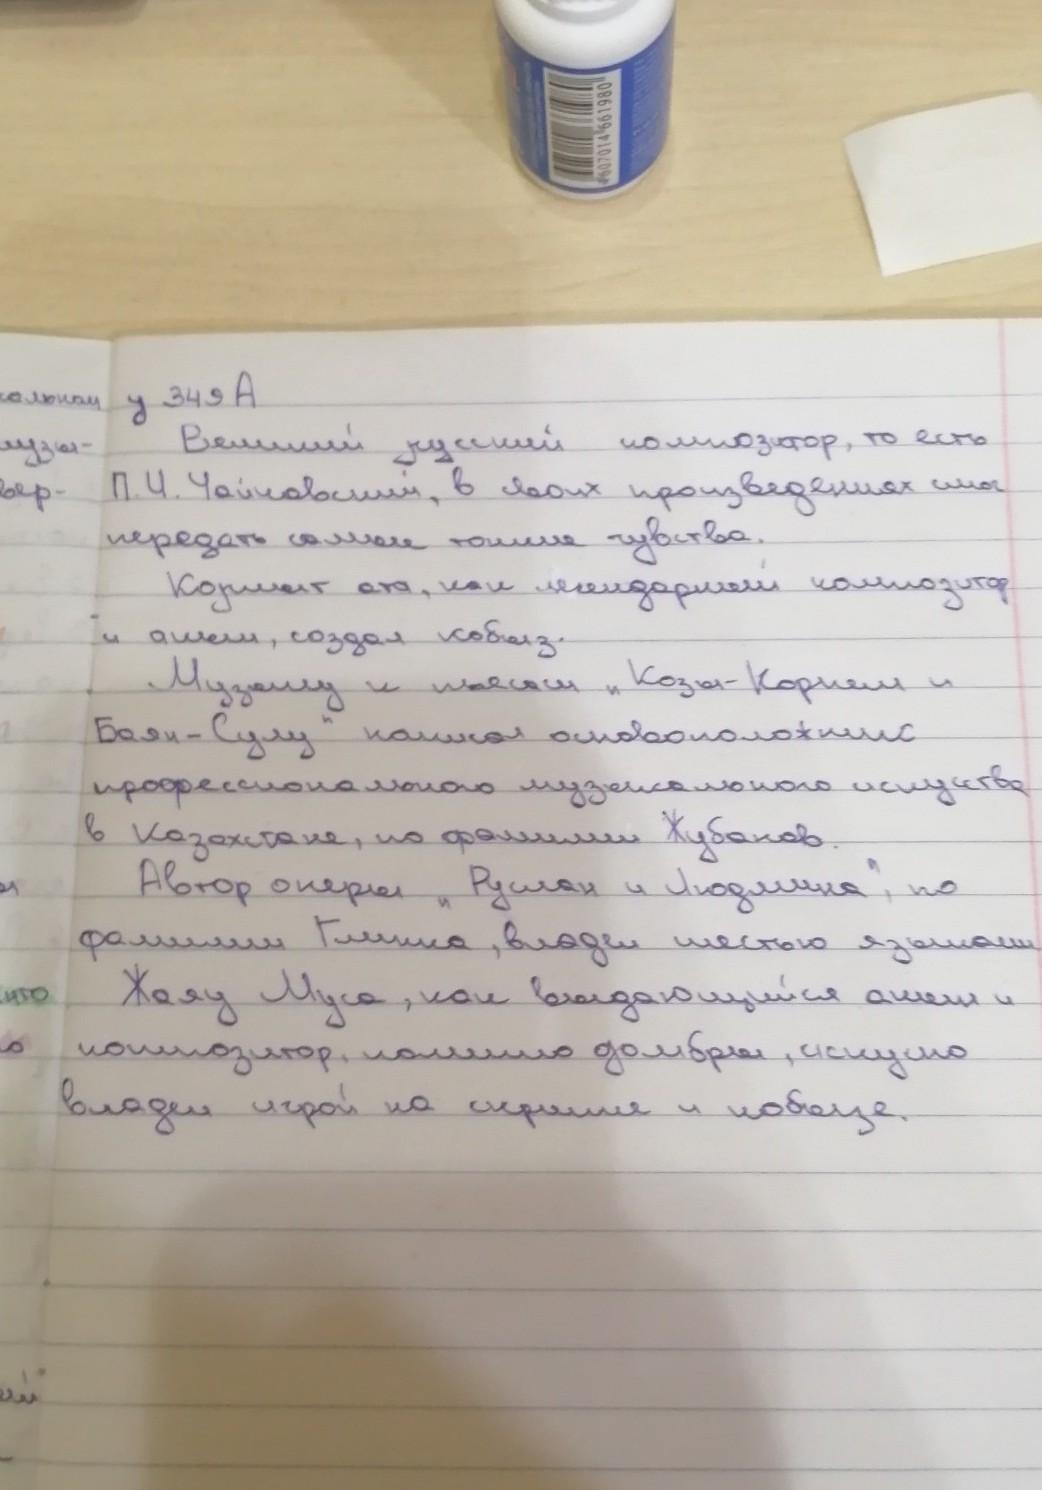 4607014 661980
у 349 А
музы-
вер-
Великий русский композитор, то есть
П.И. Чайковский, в своих произведениях смог
передать самые тонкие чувства.
Коркыт ата, как легендарный композитор
и акын, создал кобыз.
Музыку к пьесам „Козы-Корпеш и
Баян-Сулу" написал основоположник
профессионального музыкального искуства
в Казахстане, по фамилии Жубанов.
Автор оперы „Руслан и Людмила", по
фамилии Глинка, владел шестью языками
Жаяу Муса, как выдающийся акын и
композитор, помимо домбры, искусно
владел игрой на скрипке и кобызе.